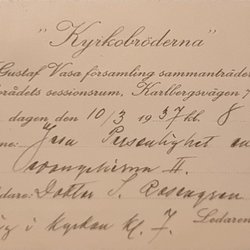 "Kyrkobröderna"
Gustaf Vasa församling sammanträder
orådets sessionsrum, Karlbergsvägen 7
dagen den 10/3 1937 kl. 8
ne: Jesu Personlighet en
evangelierna II.
dare: Doktor S. Rosengren
i kyrkan kl. 7. Ledaren